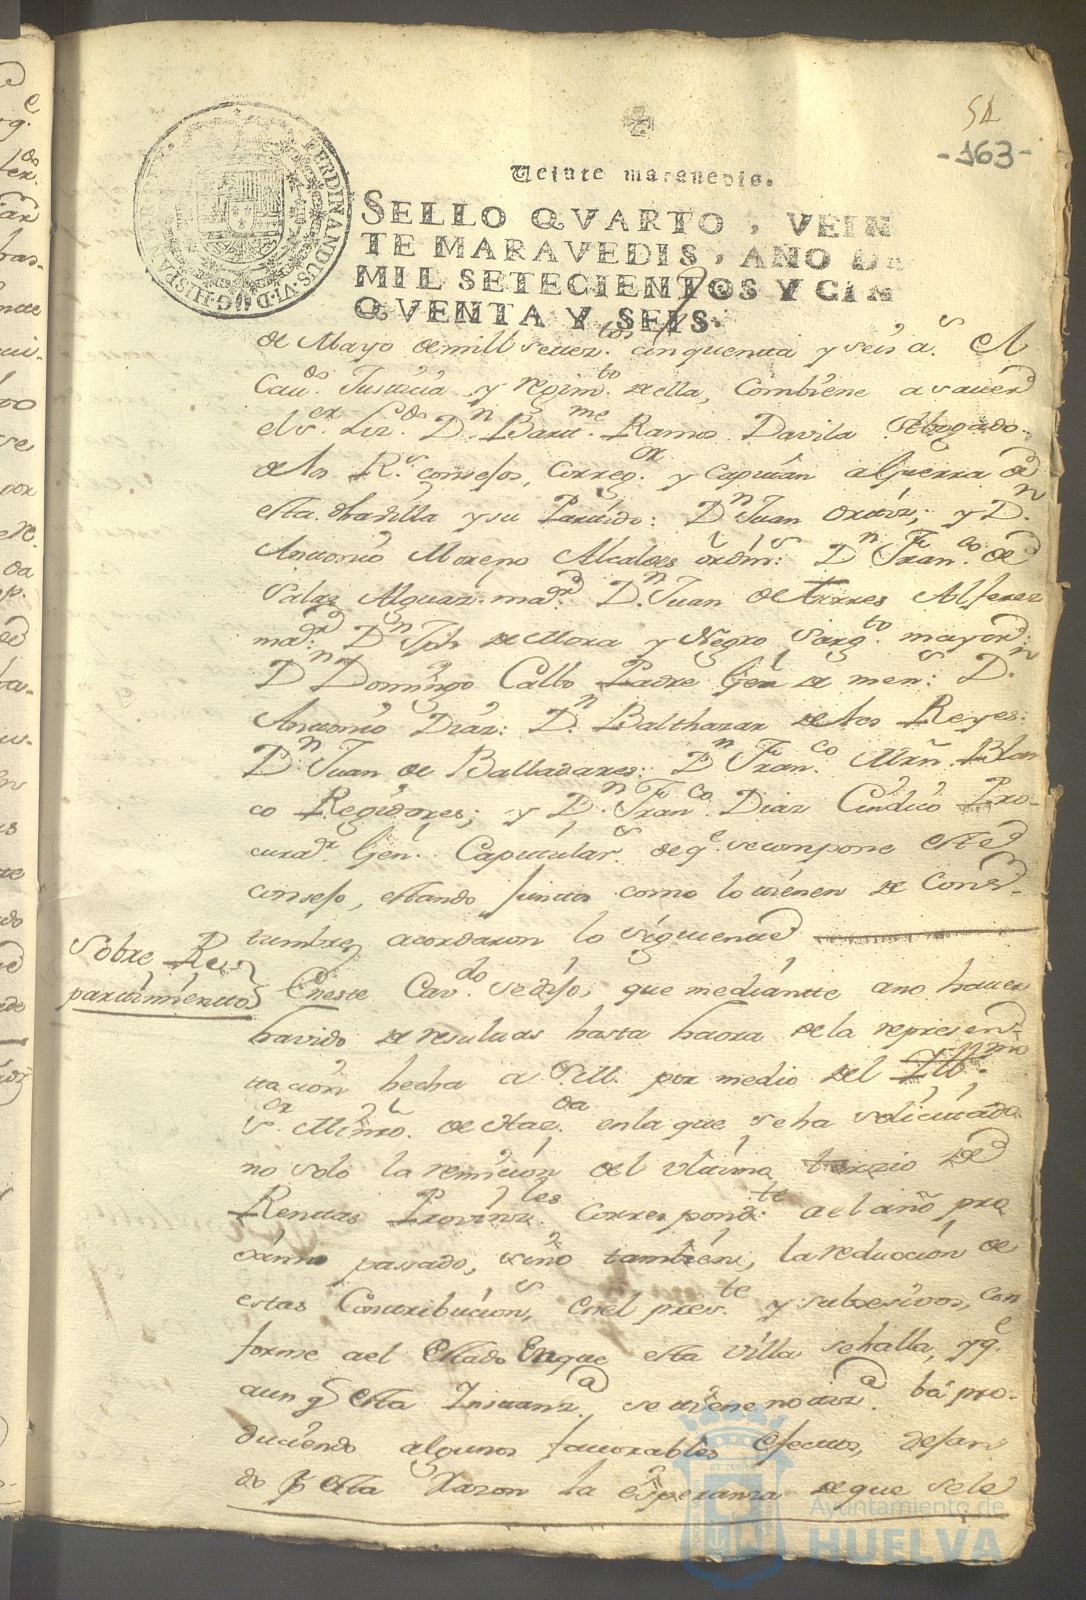 52
-163-
Veinte maravedis.
SELLO QVARTO, VEIN
TE MARAVEDIS, AÑO DE
MIL SETECIENTOS Y CIN
QVENTA Y SEIS.
FERDINANDUS·VI·D·G·HISPANIAR
de Mayo de mill settez.tos cinquentta y seis a.s El
Cav.do Justicia y regim.to de ella, combiene a saver
el s.or Liz.do D.n Bart.me Ramos Davila Abogado
de los R.s consejos, Correg.or y Capitán a Guerra de
esta dha Villa y su Partido: D.n Juan Ortiz; y D.n
Antonio Moreno Alcaldes ordin.s: D.n Fran.co de
Salas Alguaz. ma.or D.n Juan de Torres Alferez
ma.or: D.n Jph de Mora y Negro Sarg.to mayor:
D.n Domingo Calbo Padre Gen.l de men.s: D.n
Antonio Diaz: D.n Balthazar de los Reyes:
D.n Juan de Balladares: D.n Fran.co Mrñ Blan
co Regidores; y D.n Fran.co Diaz Cindico Pro-
curad.r Gen.l Capitular.s de q.e se compone este
consejo, estando juntos como lo tienen de Cons-
tumbre, acordaron lo siguiente
Sobre Re
partimientto
En este Cav.do se dijo, que mediantte a no haver
havido de resultas hasta haora de la represen-
tación hecha a S.M. por medio del Ill.mo
S.or Minro. de Haz.da en la que se ha solicitado
no solo la remición del ultimo terzio de
Renttas Provinz.les correspond.te a el año pro
ximo passado, sino también, la reducción de
estas Contribucion.s, en el pres.te y subcesivos, con
forme a el Estado en que esta Villa se halla, y q.e
aunq esta Instanz.a se tiene notiz.a ba pro-
duciendo algunos favorables efectos, dejan
do p esta razon la esperanza de que se le
Ayuntamiento de
HUELVA